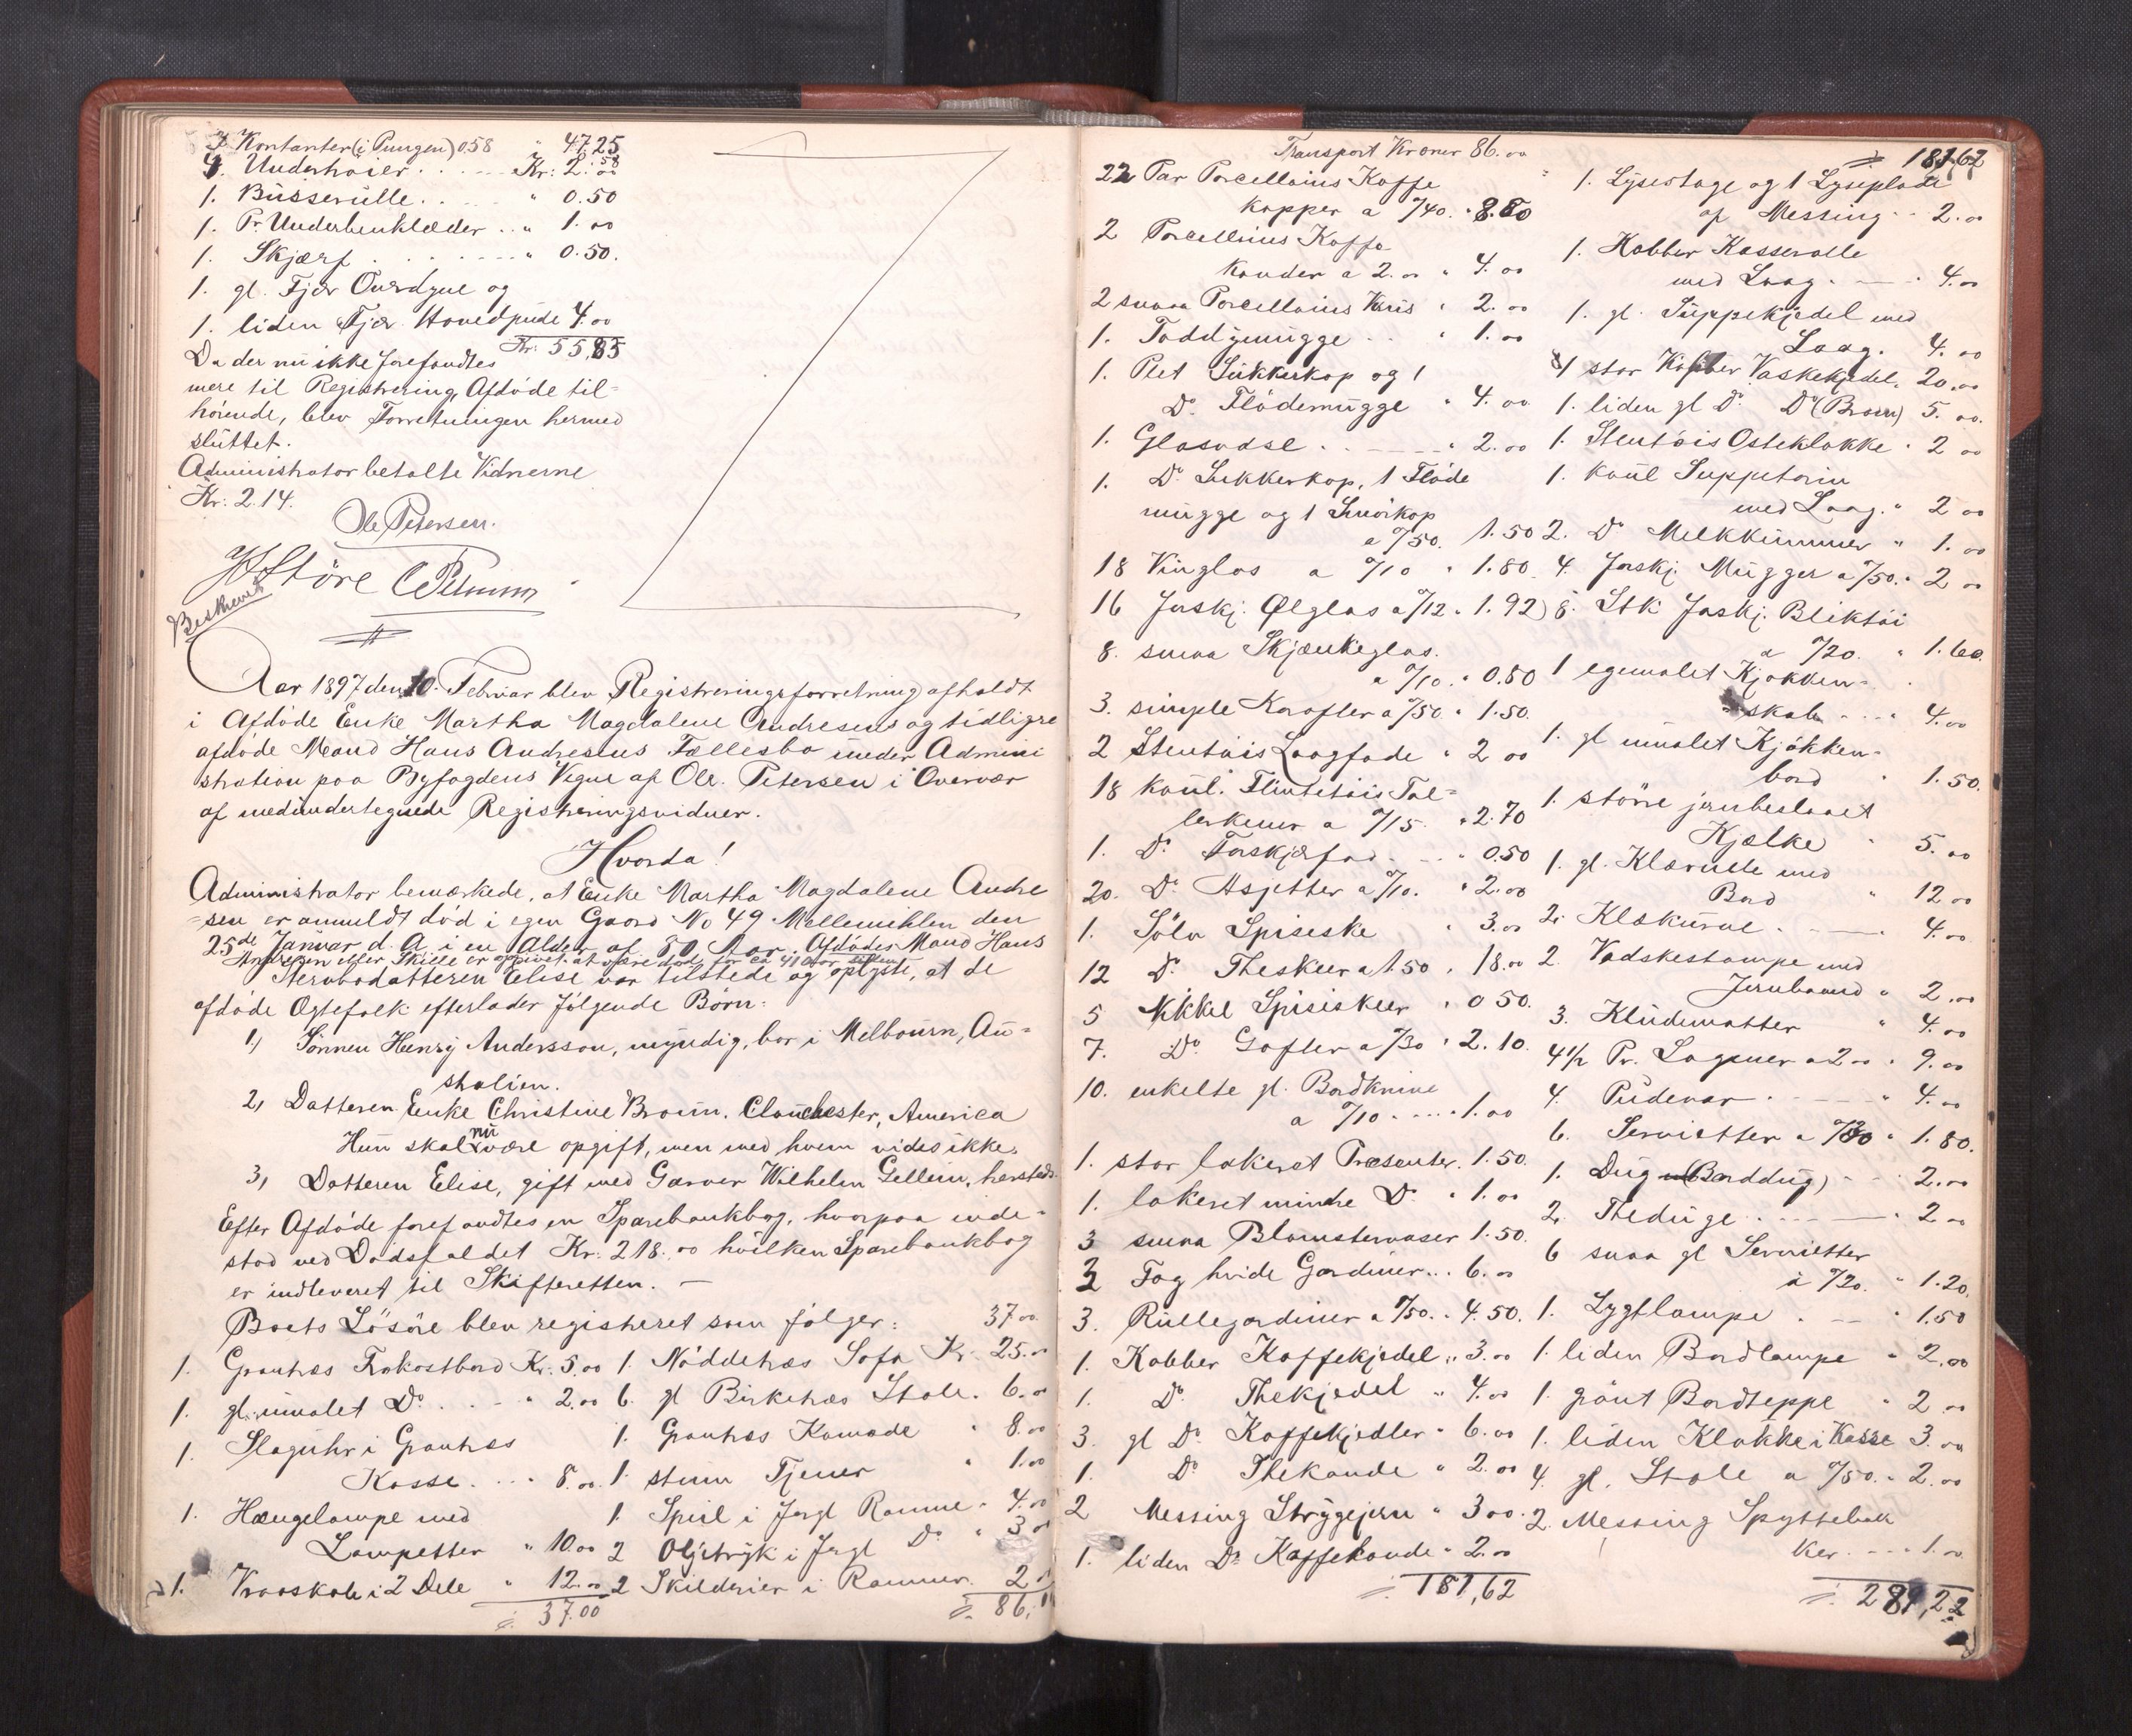 3 Kontanter (i Pungen) 0,58 " 47.25
58
4. Undertrøier . . . . Kr: 2.00
1. Busserulle . . . " 0.50
1. Pr Underbenklæder . . " 1.00
1. Skjærf . . . . . " 0.50.
1. gl. Fjær Overdyne og
1. liden Fjær Hovedpude 4.00
Kr: 55,83
Da der nu ikke forefandtes
mere til Registrering, Afdøde til-
hørende, blev Forretningen hermed
sluttet.
Administrator betalte Vidnerne
Kr: 2.14.
Ole Petersen.
Støre
Beskrevet
Aar 1897 den 10. Februar blev Registreringsforretning afholdt
i Afdøde Enke Martha Magdalene Andresens og tidligre
afdøde Mand Hans Andresens Fællesbo under Admini
stration paa Byfogdens Vegne af Ole. Petersen i Overvær
af medundertegnede Registreringsvidner.
Hvorda!
Administrator bemærkede, at Enke Martha Magdalene Andre
=sen er anmeldt død i egen Gaard No 49 Mellemehlen den
25de Januar d. A. i en Alder af 80 Aar. Afdødes Mand Hans
Andresen eller Skille er opgivet at være død for ca 41 Aar siden
Stervbodatteren Elise var tilstede og oplyste, at de
afdøde Egtefolk efterlader følgende Børn:
1) Sønnen Henry Andersson, myndig, bor i Melbourn, Au=
stralien.
2, Datteren Enke Christine Broun, Clouchester, America
Hun skal nu være opgift, men med hvem vides ikke.
3, Datteren Elise, gift med Garver Wilhelm Gellein, herstede.
Efter Afdøde forefandtes en Sparebankbog, hvorpaa inde-
stod ved Dødsfaldet Kr. 218.00 hvilken Sparebankbog
er indleveret til Skifteretten. —
Boets Løsøre blev registreret som følger:
37.00
1. Grantræs Frokostbord Kr. 5.00
1. gl. umalet Do . . " 2.00
1. Slaguhr i Grantræs
Kasse . . . 8.00
1. Hængelampe med
Lampetter " 10.00
1. Vraaskab i 2 Dele " 12.00
37.00
1. Nøddetræs Sofa Kr. 25.00
6. gl Birketræs Stole. 6.00
1. Grantræs Komode " 8.00
1. stum Tjener " 1.00
1. Speil i Forgl Ramme " 4.00
2 Oljetryk i Forgl Do " 3.00
2 Skilderier i Rammer. 2.00
86,00
Transport Kroner 86.00
22 Par Porcellains Kaffe
kopper a 0/40. " 8.80
2 Porcellains Kaffe
kander a 2.00 " 4.00
2 smaa Porcellains Krus " 2.00
1. Toddymugge . . " 1.00
1. Plet Sukkerkop og 1
Do. Flødemugge " 4.00
1. Glasvase . . . . " 2.00
1. Do Sukkerkop, 1 Fløde
mugge og 1 Smørkop
a 0/50. 1.50
18 Vinglas a 0/10 " 1.80
16 Forskj. Ølglas a 0/12 " 1.92
8. smaa Skjænkeglas.
a 0/10. " 0.80
3. simple Karafler a 0/50. " 1.50.
2 Stentøis Laagfade " 2.00
18 koul. Flintetøis Tal=
lerkener a 0/15. " 2.70
1. Do Forskjærfad . . " 0.50
20. Do Asjetter a 0/10. " 2.00
1. Sølv Spiseske " 3.00
12 Do Theskeer a 1.50 " 18.00
5 Nikkel Spiseskeer " 0.50.
7. Do Gafler a 0/30 " 2.10.
10. enkelte gl. Bordknive
a 0/10 . . . . 1.00
1. stor lakeret Presenter. 1.50.
1. lakeret mindre Do " 1.00
3 smaa Blomstervaser 1.50.
3 Fag hvide Gardiner . . 6.00
3. Rullegardiner a 1/50. . 4.50.
1. Kobber Kaffekjedel " 3.00
1. Do Thekjedel " 4.00
3. gl Do Kaffekjedler " 6.00
1. Do Thekande " 2.00
2 Messing Strygejern " 3.00
1. liden Do Kaffekande " 2.00
181,62
181,62
1. Lysestage og 1 Lyseplade
af Messing . . 2.00
1. Kobber Kasserolle
med Laag . . . 4.00
1. gl. Suppekjedel med
Laag. 4.00
1 stor Kobber Vaskekjedel. 20.00
1. liden gl Do Do (Broun) 5.00.
1. Stentøis Osteklokke " 2.00
1. koul Suppeterin
med Laag. " 2.00
2. Do Melkkummer " 1.00
4. forskj. Mugger a 0/50. " 2.00
8. Stk forskj. Bliktøi
a 0/20. " 1.60.
1 egemalet Kjøkken=
skab . . . . 4.00
1. gl umalet Kjøkken=
bord " 1.50.
1. større jernbeslaaet
Kjælke " 5.00
1. gl. Klærulle med
Bord " 12.00
2. Klækurve . . . . 4.00
2. Vadskestampe med
Jernbaand " 2.00
3. Kludematter " 4.00
4½ Pr. Lagener a 2.00 " 9.00
4. Pudevar . . . " 4.00
6. Servietter a 0/30 " 1.80.
1. Dug (Borddug) . . 2.00
2. Theduge . . . . " 2.00
6 smaa gl Servietter
à 0/20. " 1.20.
1. Lygtlampe . . . " 1.50
1. liden Bordlampe " 2.00
1. grønt Bordteppe " 2.00
1. liden Klokke i Kasse 3.00
4. gl. Stole a 0/50. " 2.00
2. Messing Spyttebak
ker . . . 1.00
289,22